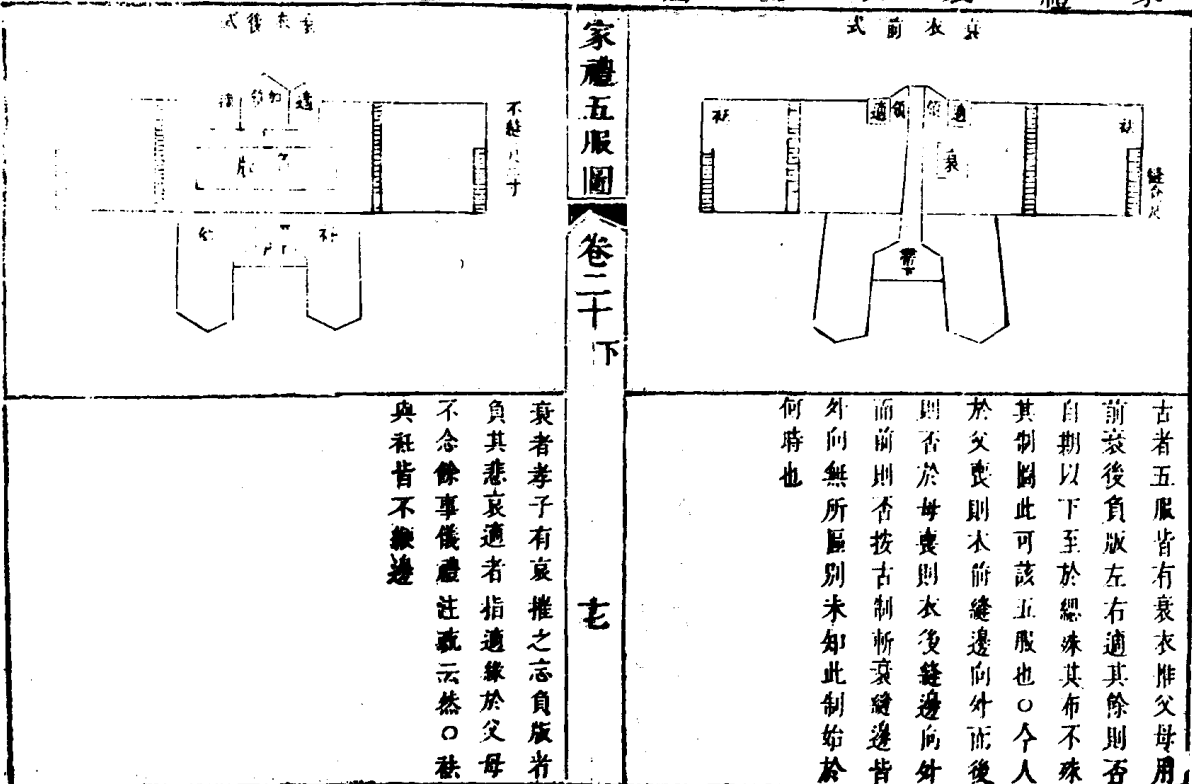 衰衣前式
適領領適
衰
袂
袂
縫合尺
帶下
古者五服皆有衰衣惟父母用
前衰後負版左右適其餘則否
自期以下至於緦殊其布不殊
其制圖此可該五服也○今人
於父喪則衣前縫邊向外而後
則否於母喪則衣後縫邊向外
而前則否按古制斬衰縫邊皆
外向無所區別未知此制始於
何時也
家禮五服圖
卷二十下
衰衣後式
適領適
不縫尺二寸
負版
衽
衽
衰者孝子有哀摧之志負版者
負其悲哀適者指適緣於父母
不念餘事儀禮注疏云然○袂
與衽皆不緶邊